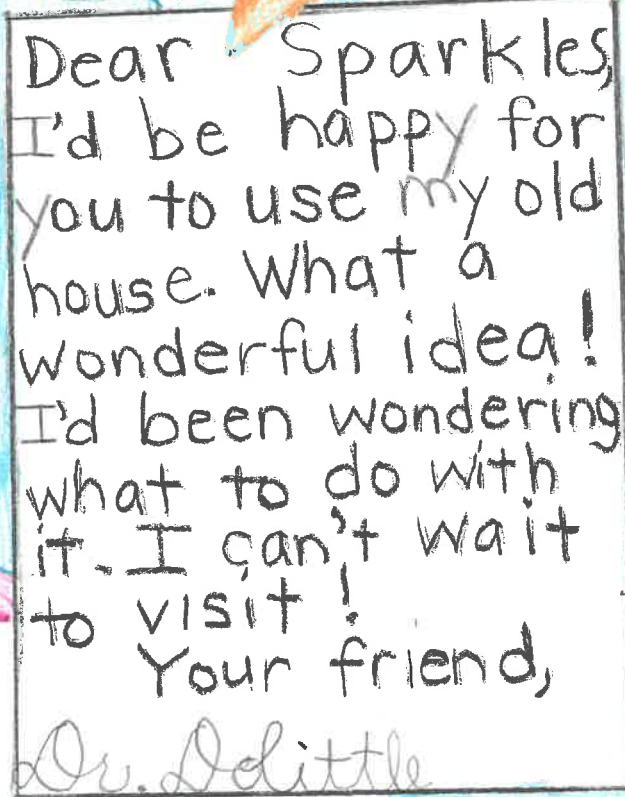 Dear Sparkles,
I'd be happy for
you to use my old
house. What a
wonderful idea!
I'd been wondering
what to do with
it. I can't wait
to visit!
Your friend,
Dr. Dolittle